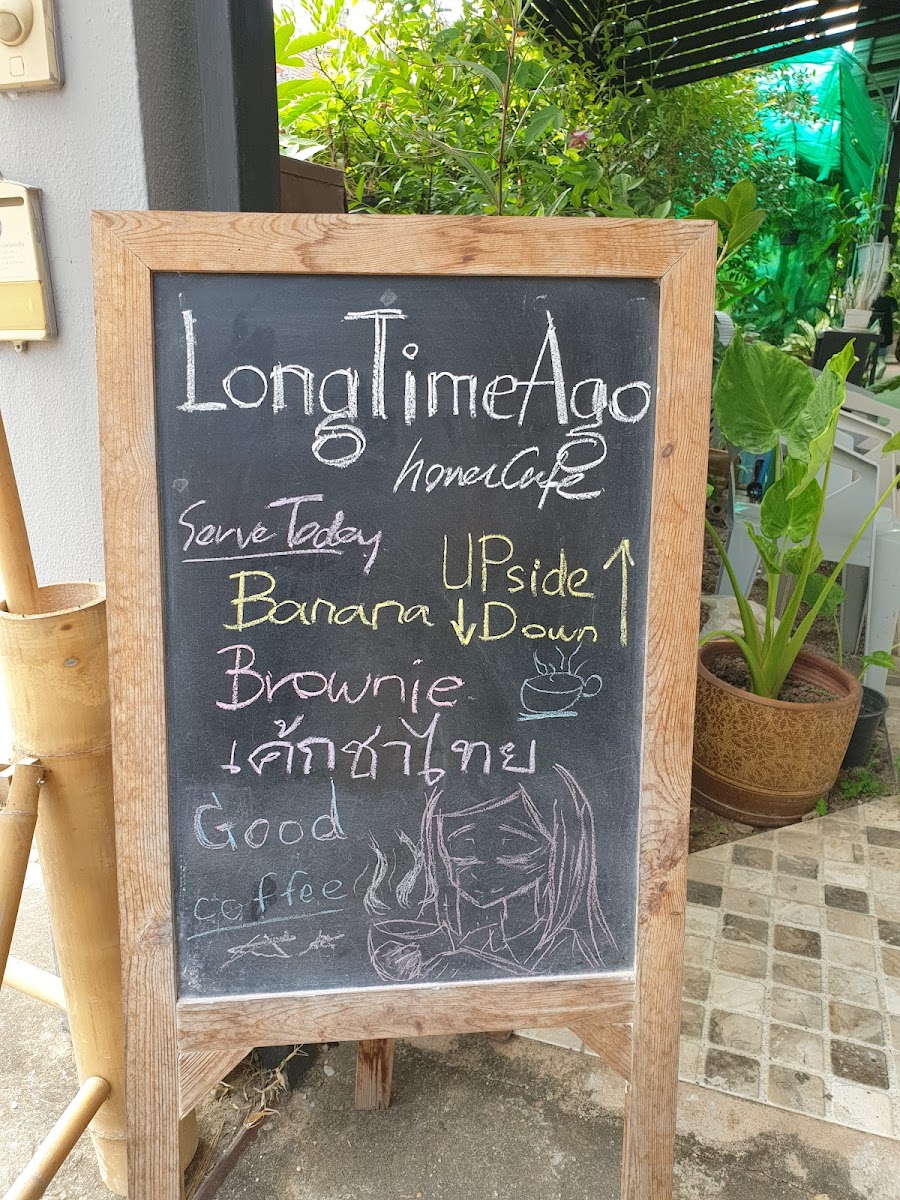 LongTimeAgo
homeCafe
Serve Today
Banana UPside Down
Brownie
เค้กชาไทย
Good
coffee